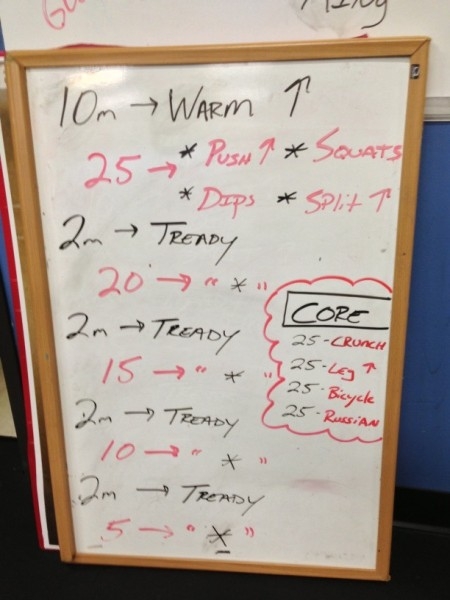 10m → WARM ↑
25 → * PUSH ↑ * SQUATS
* DIPS * SPLIT ↑
2m → TREADY
20 → " * "
2m → TREADY
15 → " * "
2m → TREADY
10 → " * "
2m → TREADY
5 → " * "
CORE
25 - CRUNCH
25 - Leg ↑
25 - Bicycle
25 - RUSSIAN